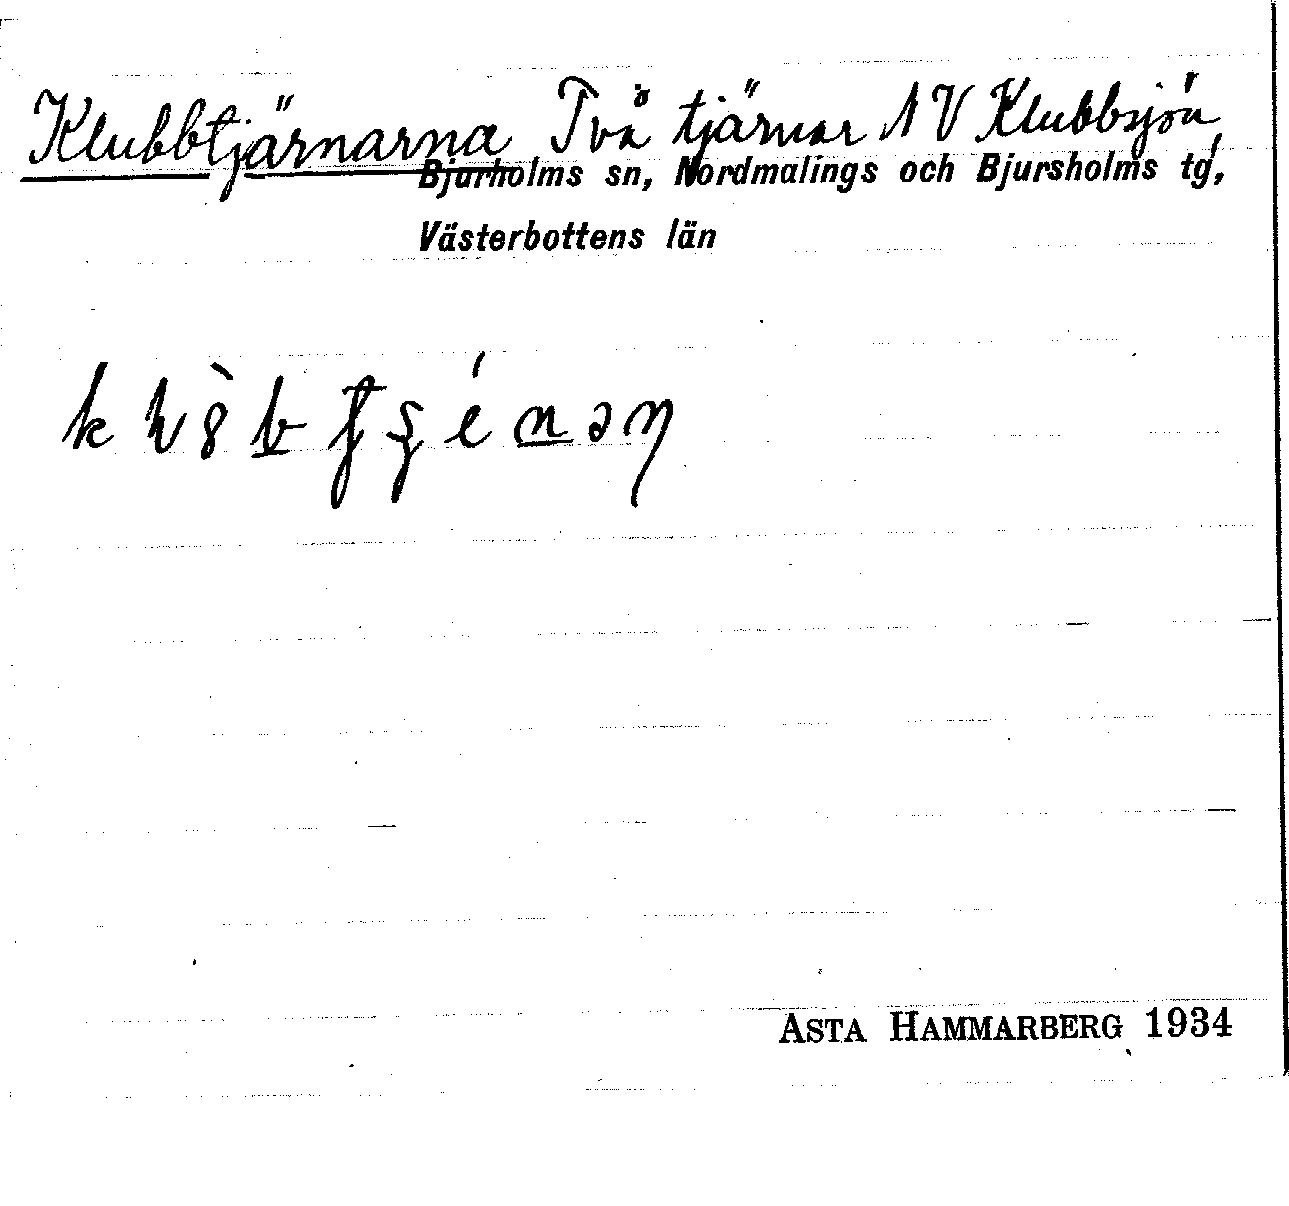 Klubbtjärnarna Två tjärnar NV Klubbsjön,
Bjurholms sn, Nordmalings och Bjursholms tg,
Västerbottens län
ASTA HAMMARBERG 1934